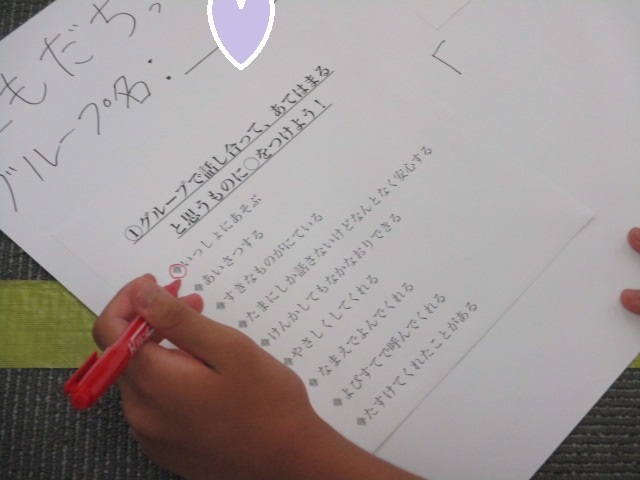 ともだち
グループ名:
①グループで話し合って、あてはまる
と思うものに○をつけよう！
◆いっしょにあそぶ
◆あいさつする
◆すきなものがにている
◆たまにしか話さないけどなんとなく安心する
◆けんかしてもなかなおりできる
◆やさしくしてくれる
◆なまえでよんでくれる
◆よびすてで呼んでくれる
◆たすけてくれたことがある